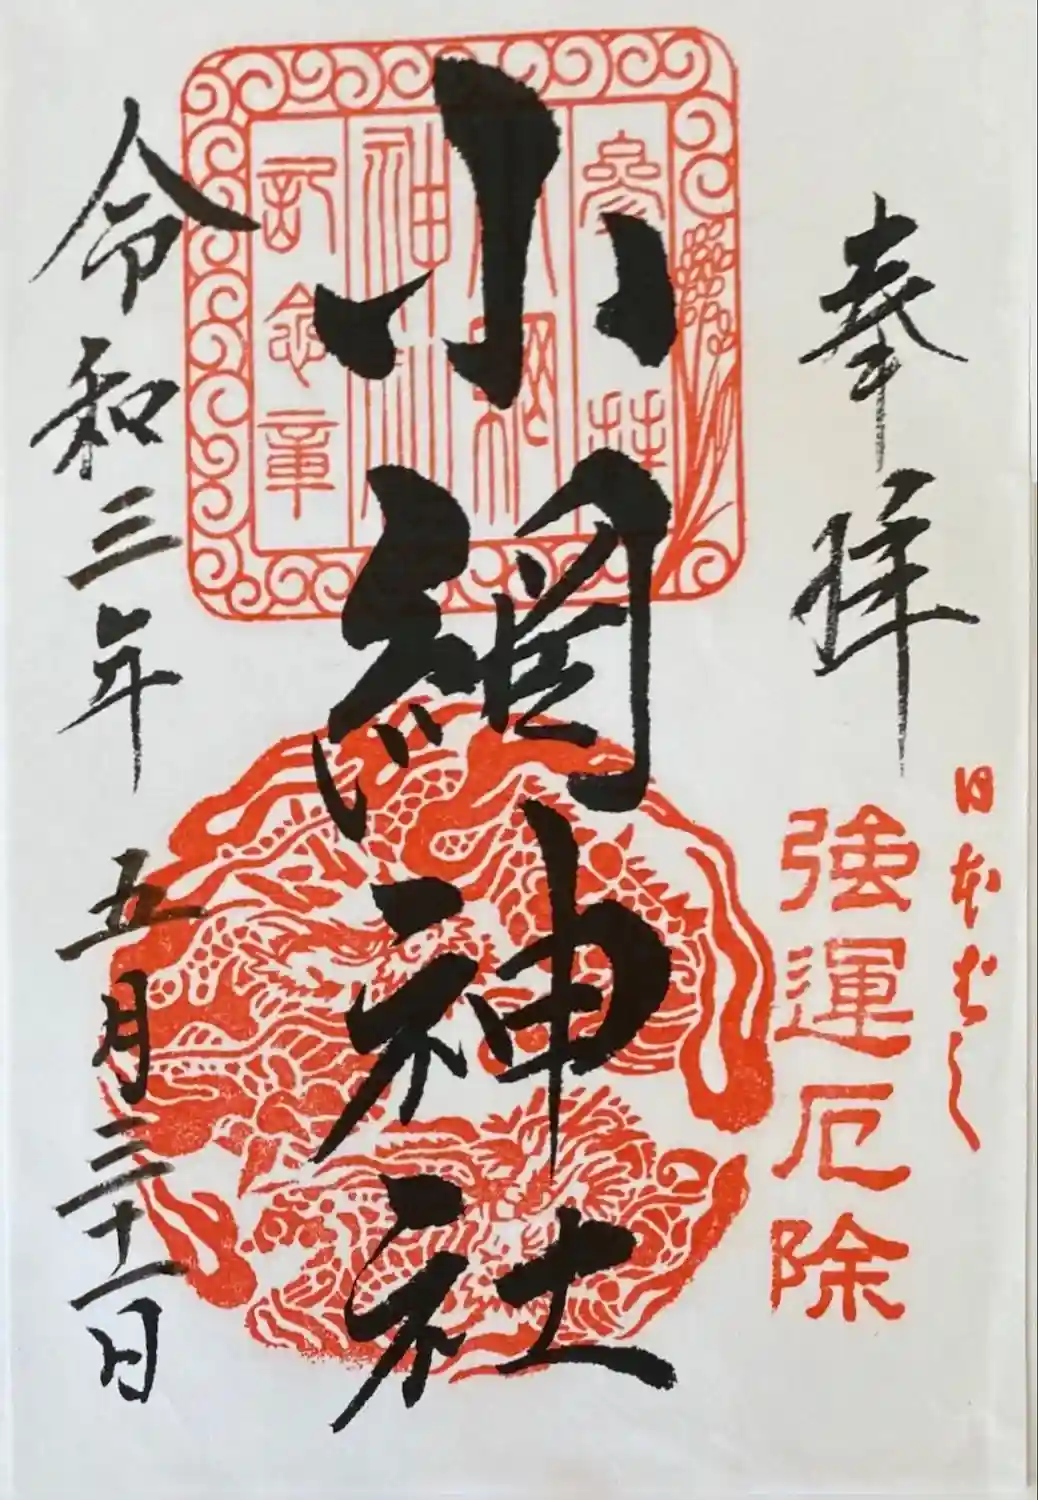 日本ばし
奉拝
強運厄除
参拝
小網
神社
記念章
小網神社
令和三年五月三十一日